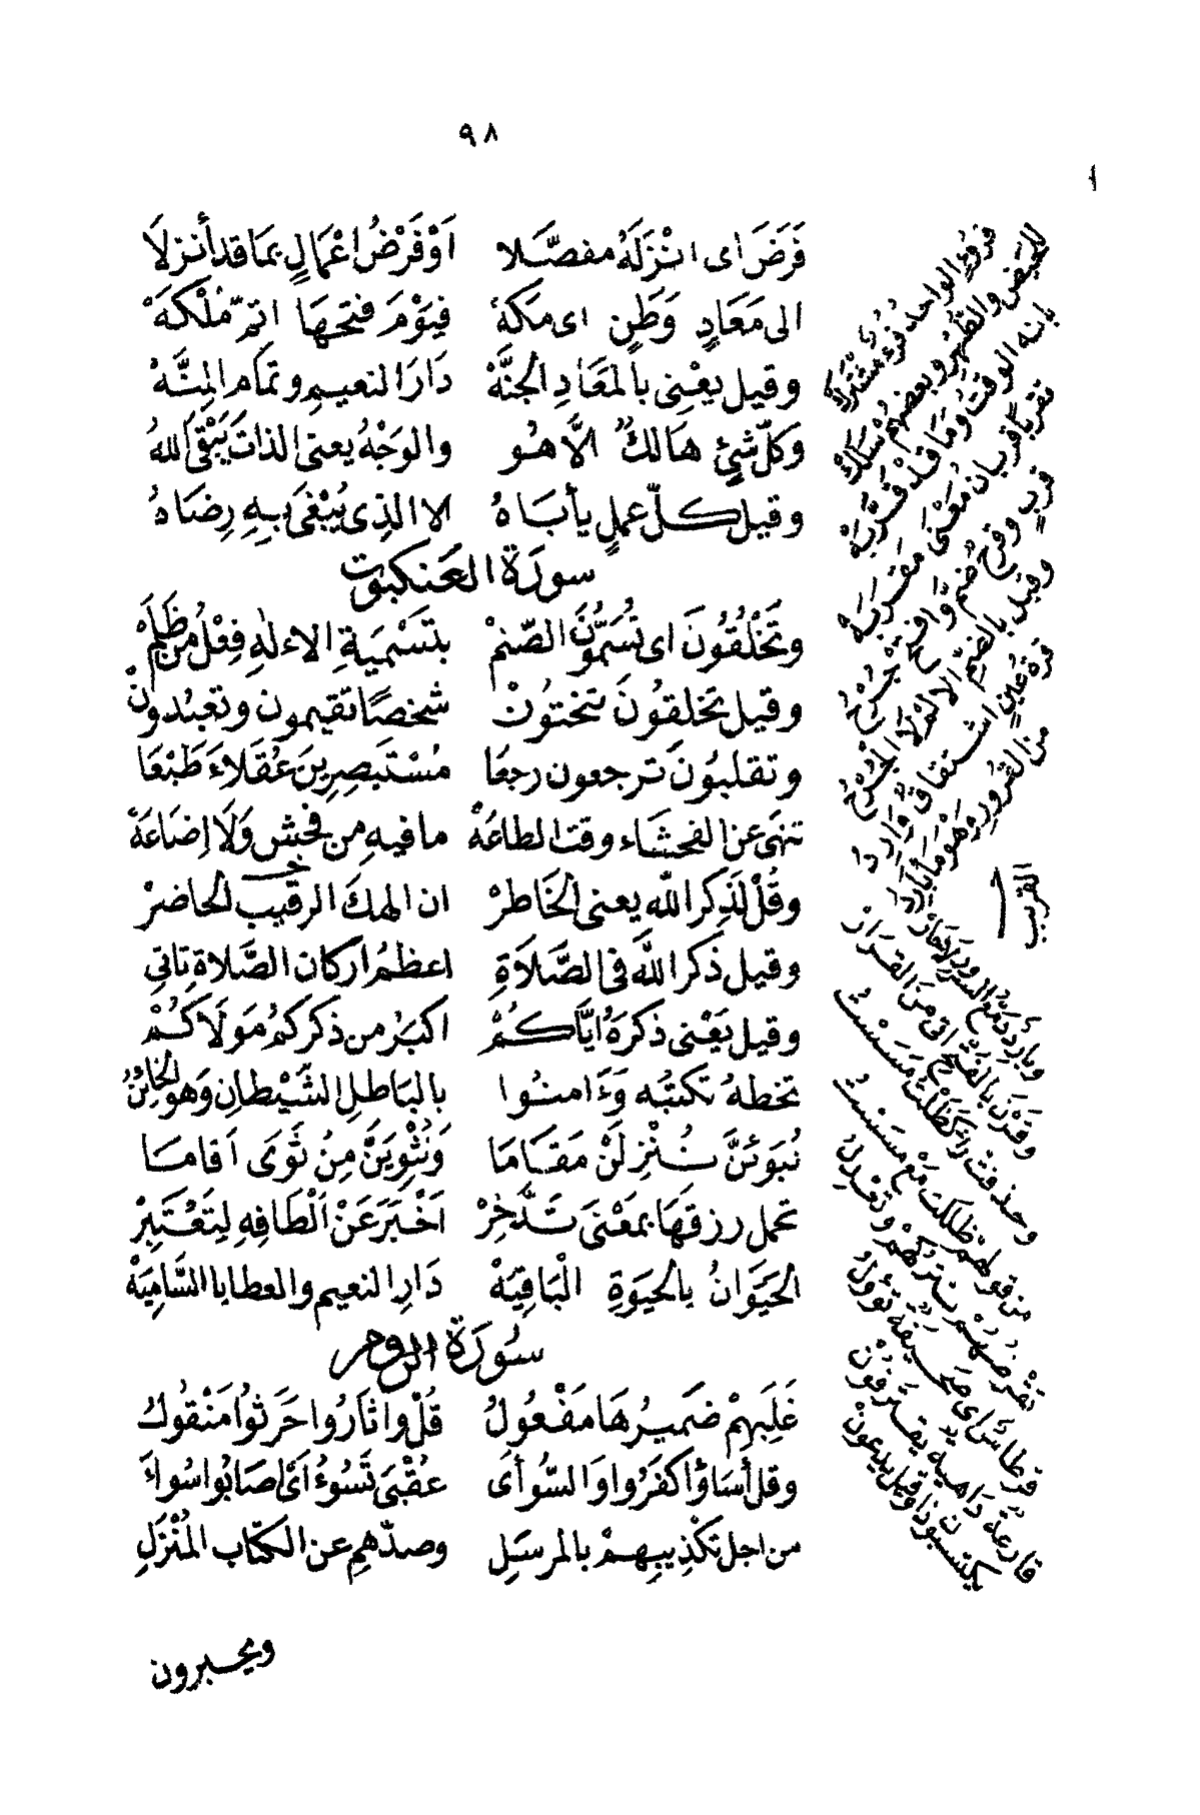 ٩٨
فَرَضَ اى انْزَلَهُ مفصَّلا اَوْفَرْضُ اعْمَالٍ بمَا قد أنزلاَ
الى مَعَادٍ وَطَنٍ اى مَكَةْ فيَوْمَ فتحهَا اتمّ مُلْكَهْ
وقيل يعْنِى بالمَعَادِ الجنَّهْ دَارَ النعيمِ وتمَام المِنَّهْ
وَكلّ شئٍ هَالكٌ الاَّ هُو والوَجْهُ يعنى الذاتَ يَبْقَى اللهُ
وقيل كلّ عملٍ يأبَاهُ الا الذِى يُبْغَى بِهِ رِضَاهُ
سورة العنكبوت
وتَخْلُقُونَ اى تُسَمُّونَ الصّنمْ بتَسْمِيَةِ الاءلهِ فِعْلُ مَن ظَلَمْ
وقيل تخلقُونَ تنحتُونْ شخصًا تقيمون وتعبُدونْ
وتقلبُونَ ترجعون رجعَا مُسْتَبصِرِينَ عُقَلاءَ طَبْعَا
تنهَى عن الفحشَاء وقت الطاعَهْ ما فيهِ من فحْشٍ وَلَا اِضَاعَهْ
وقُلْ لَذِكر اللّه يعنى الخَاطرْ ان الهكَ الرقيب الحاضرْ
وقيل ذكر اللّه فى الصَّلاَةِ اعظمُ اركان الصَّلاة تاتى
وقيل يَعْنى ذكرَهُ ايَّاكُمْ اكبَرُ من ذكركمُ مَولَاكُمْ
تخطهُ تكتبُه وَءَامنُوا بالبَاطلِ الشّيْطانِ وَهو الخائِنُ
نُبَوّئنَّ نُنْزِلَنْ مَقَامَا وَنُثْوِيَنَّ مِنْ ثَوَى اَقامَا
تحمل رزقهَا بمَعْنىَ تَدَّخِرْ اَخْبَرَعَنْ اَلْطَافِهِ لِتَعْتَبِرْ
الحَيَوَانُ بالحَيَوةِ الْبَاقِيَهْ دَارِ النعيم والعطايا السَّامِيَهْ
سُورَة الروم
غَلَبِهِمْ ضَميرُهَا مَفْعُولُ قُلْ وأثَارُوا حَرَثُوا مَنْقُولُ
وقل أسَاؤا كفَرُوا وَالسُّوأى عُقْبَى تَسُوءُ اَىْ اصَابُوا سُواءَ
من اجل تكْذِيبِهمْ بالمرسَلِ وصدّهم عن الكتَاب المُنْزَلِ
ويحبرون
قروء الواحد قرء مشترك
للحيض والطهر وبعضهم سلك
بانه الوقت وما قد قربه
تقربا قربان معنى مقربه
قرح وقرح ضم وافتح جرح
وقيل بالضم الالم لا الجرح
قرة عين اشتقاق وارد
من القرور وهو ماء بارد
القريب
وقرن بالفتح اتى من القرار
وحذفت اذ ظلت مسست
من قولهم ظللت مع مسست
تقرضهم تتركهم وتعدل
قرطاس اى صحيفة تؤول
قارعة داهية يقترفون